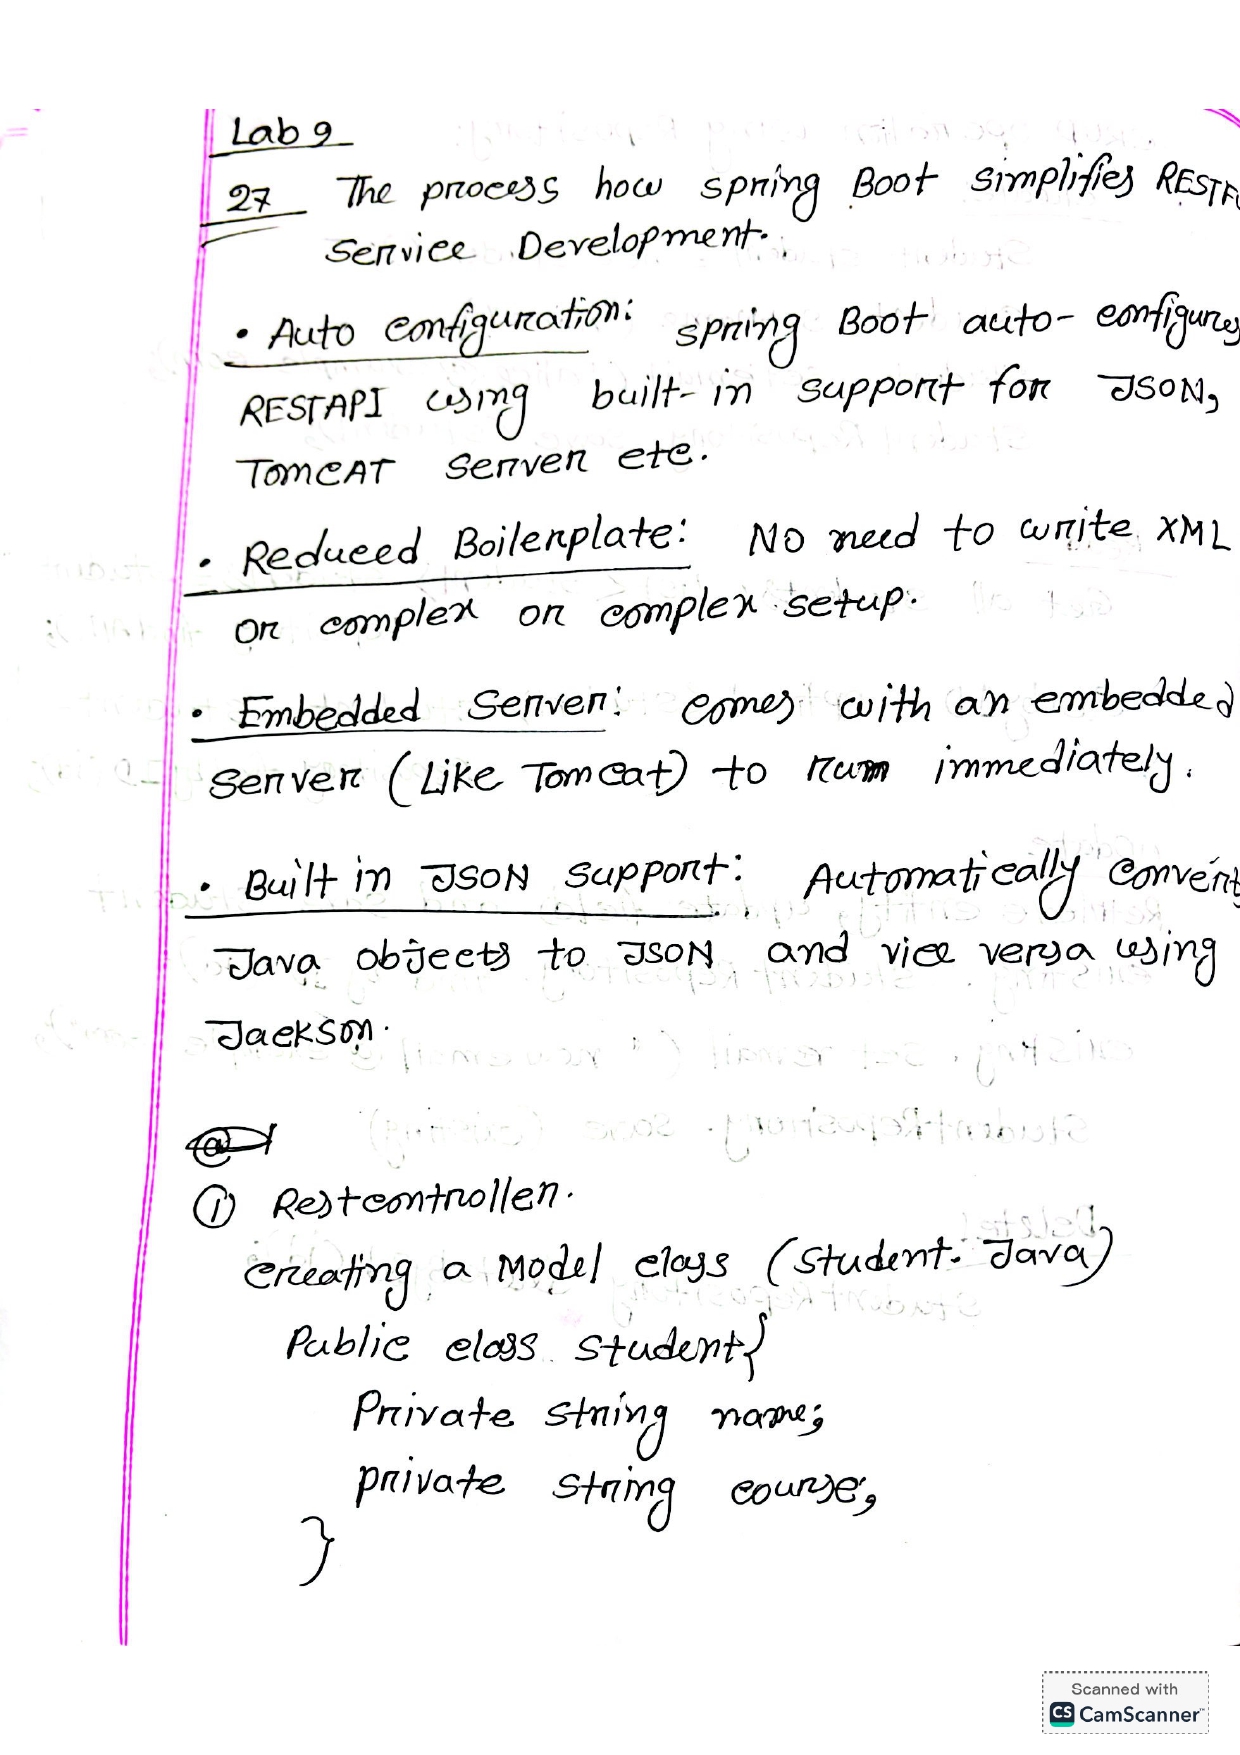 Lab 9
27 The process how spring Boot simplifies RESTF
Service Development.
• Auto configuration: spring Boot auto-configures
RESTAPI using built-in support for JSON,
TOMCAT server etc.
• Reduced Boilerplate: No need to write XML
or complex or complex setup.
• Embedded Server: comes with an embedded
server (Like Tomcat) to run immediately.
• Built in JSON support: Automatically convert
Java objects to JSON and vice versa using
Jackson.
① Restcontroller.
creating a Model class (Student. Java)
Public class student{
Private string name;
private string course;
}
Scanned with
CS CamScanner